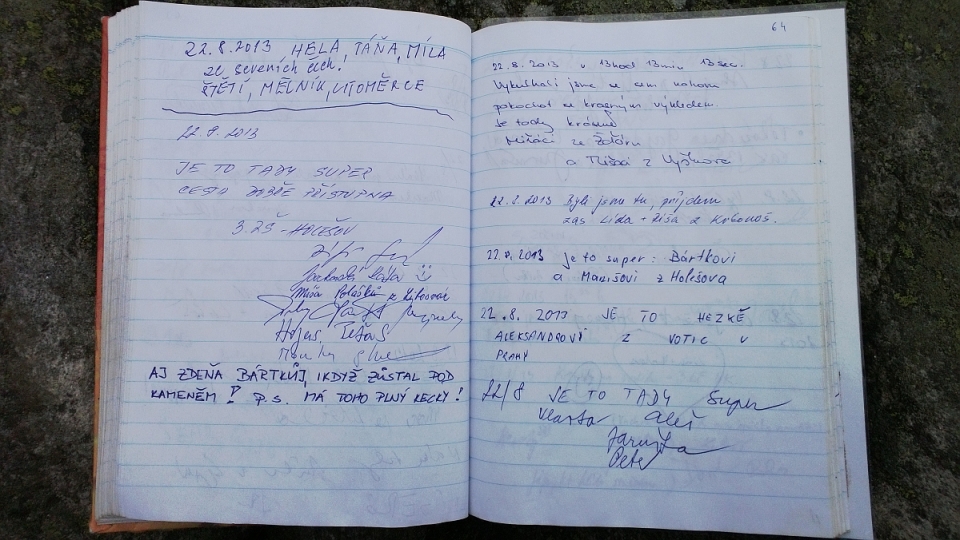 22.8.2013 HELA, TÁŇA, MÍLA
ze severních čech.
ŠTĚTÍ, MĚLNÍK, LITOMĚRCE
22.8.2013
JE TO TADY SUPER
CESTA DOBŘE PŘÍSTUPNA
3 ZŠ - HOLEŠOV
Míša Polášků z
Hojas, Tetaś
AJ ZDEŇA BÁRTKŮJ, IKDYŽ ZŮSTAL POD
KAMENĚM! P.S. MÁ TOHO PLNÝ KECKY!
64
22.8.2013 v 13hod 13min 13sec.
Vykulhali jsme se sem nahoru
pokochat se krásným výhledem.
Je tady krásně
Mišáci ze Žďáru
a Míša z Vyškova
22.8.2013 Byli jsme tu, příjdem
zas. Lída + Ríša z Krkonoš.
22.8.2013 je to super: Bártkovi
a Marišovi z Holešova
22.8.2013 JE TO HEZKÉ
ALEKSANDROVI Z VOTIC U
PRAHY
22/8 JE TO TADY super
Vlasta Aleš
Jaruška
Petr